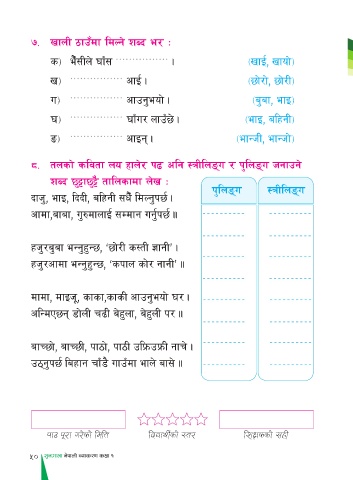 ७. खाली ठाउँमा मिल्ने शब्द भर :
क) भैँसीले घाँस ................ । (खाई, खायो)
ख) ................ आई । (छोरो, छोरी)
ग) ................ आउनुभयो । (बुबा, भाइ)
घ) ................ घाँगर लाउँछे । (भाइ, बहिनी)
ङ) ................ आइन् । (भान्जी, भान्जो)
८. तलको कविता लय हालेर पढ अनि स्त्रीलिङ्ग र पुलिङ्ग जनाउने
शब्द छुट्टाछुट्टै तालिकामा लेख :
पुलिङ्ग स्त्रीलिङ्ग
दाजु, भाइ, दिदी, बहिनी सधैँ मिल्नुपर्छ ।
आमा,बाबा, गुरुमालाई सम्मान गर्नुपर्छ ॥
हजुरबुबा भन्नुहुन्छ, ‘छोरी कस्ती ज्ञानी’ ।
हजुरआमा भन्नुहुन्छ, ‘कपाल कोर नानी’ ॥
मामा, माइजू, काका,काकी आउनुभयो घर ।
अन्मिएछन् डोली चढी बेहुला, बेहुली पर ॥
बाच्छो, बाच्छी, पाठो, पाठी उफ्रिउफ्री नाचे ।
उठ्नुपर्छ बिहान चाँडै गाउँमा भाले बासे ॥
पाठ पूरा गरेको मिति विद्यार्थीको स्तर शिक्षकको सही
५० नेपाली व्याकरण कक्षा १